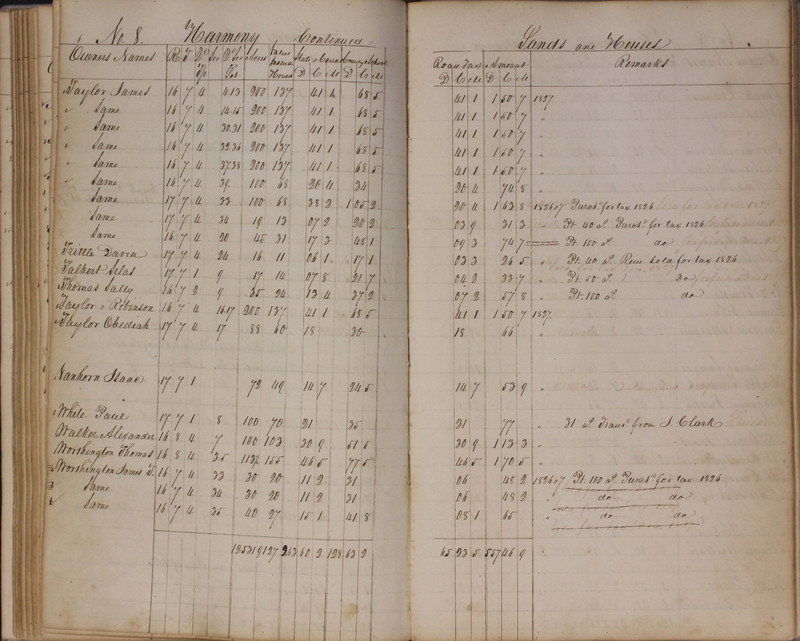 No. 8. Harmony Continued. Lands and Houses
Owners Names R T Acres Road Tax Amount Remarks
D C M D C M D C M D C M
Taylor James 16 7 4 4.13 200 137 41 1 68 5 41 1 1 50 7 1827
" Same 16 7 4 14.15 200 137 41 1 68 5 41 1 1 50 7 "
" Same 16 7 4 30.31 200 137 41 1 68 5 41 1 1 50 7 "
" Same 16 7 4 32.36 200 137 41 1 68 5 41 1 1 50 7 "
" Same 16 7 4 37.38 200 137 41 1 68 5 41 1 1 50 7 "
" Same 16 7 4 39 100 68 20 4 34 20 4 74 8 "
Same 17 7 4 33 100 68 38 2 1 05 2 20 4 1 63 8 1826 & 7 for tax 1826
Same 17 7 4 34 19 13 07 2 20 2 03 9 31 3 Pt. 40 a. for tax 1826
Same 16 7 4 20 45 31 17 3 48 1 09 3 74 7 Pt. 100 a. do
Tritte David 17 7 4 24 16 11 06 1 17 1 03 3 26 5 " Pt. 40 a. for tax 1826
Talkert Silas 17 7 1 9 17 14 07 8 21 7 04 2 33 7 " Pt. 50 a. do
Thomas Sally 16 7 2 9 35 24 13 4 37 2 07 2 57 8 " Pt. 100 a. do
Taylor & Robinson 16 7 4 16.17 200 137 41 1 68 5 41 1 1 50 7 1827
Taylor Obediah 17 7 4 17 88 60 18 30 18 66 "
Vanhorn Isaac 17 7 1 72 49 14 7 24 5 14 7 53 9 "
White Paul 17 7 1 8 100 70 21 35 21 77 " 31 a. Trans. from J. Clark
Walker Alexander 16 8 4 7 100 103 30 9 51 5 30 9 1 13 3 "
Worthington Thomas 16 8 4 3.5 113½ 155 46 5 77 5 46 5 1 70 5 "
Worthington James T. 16 7 4 33 30 20 11 2 31 06 48 2 1826 & 7 Pt. 110 a. for tax 1826
" Same 16 7 4 34 30 20 11 2 31 06 48 2 " do do
" Same 16 7 4 35 40 27 15 1 41 8 08 1 65 " do do
12531 9127 263 60 2 128 63 2 65 23 5 557 46 9